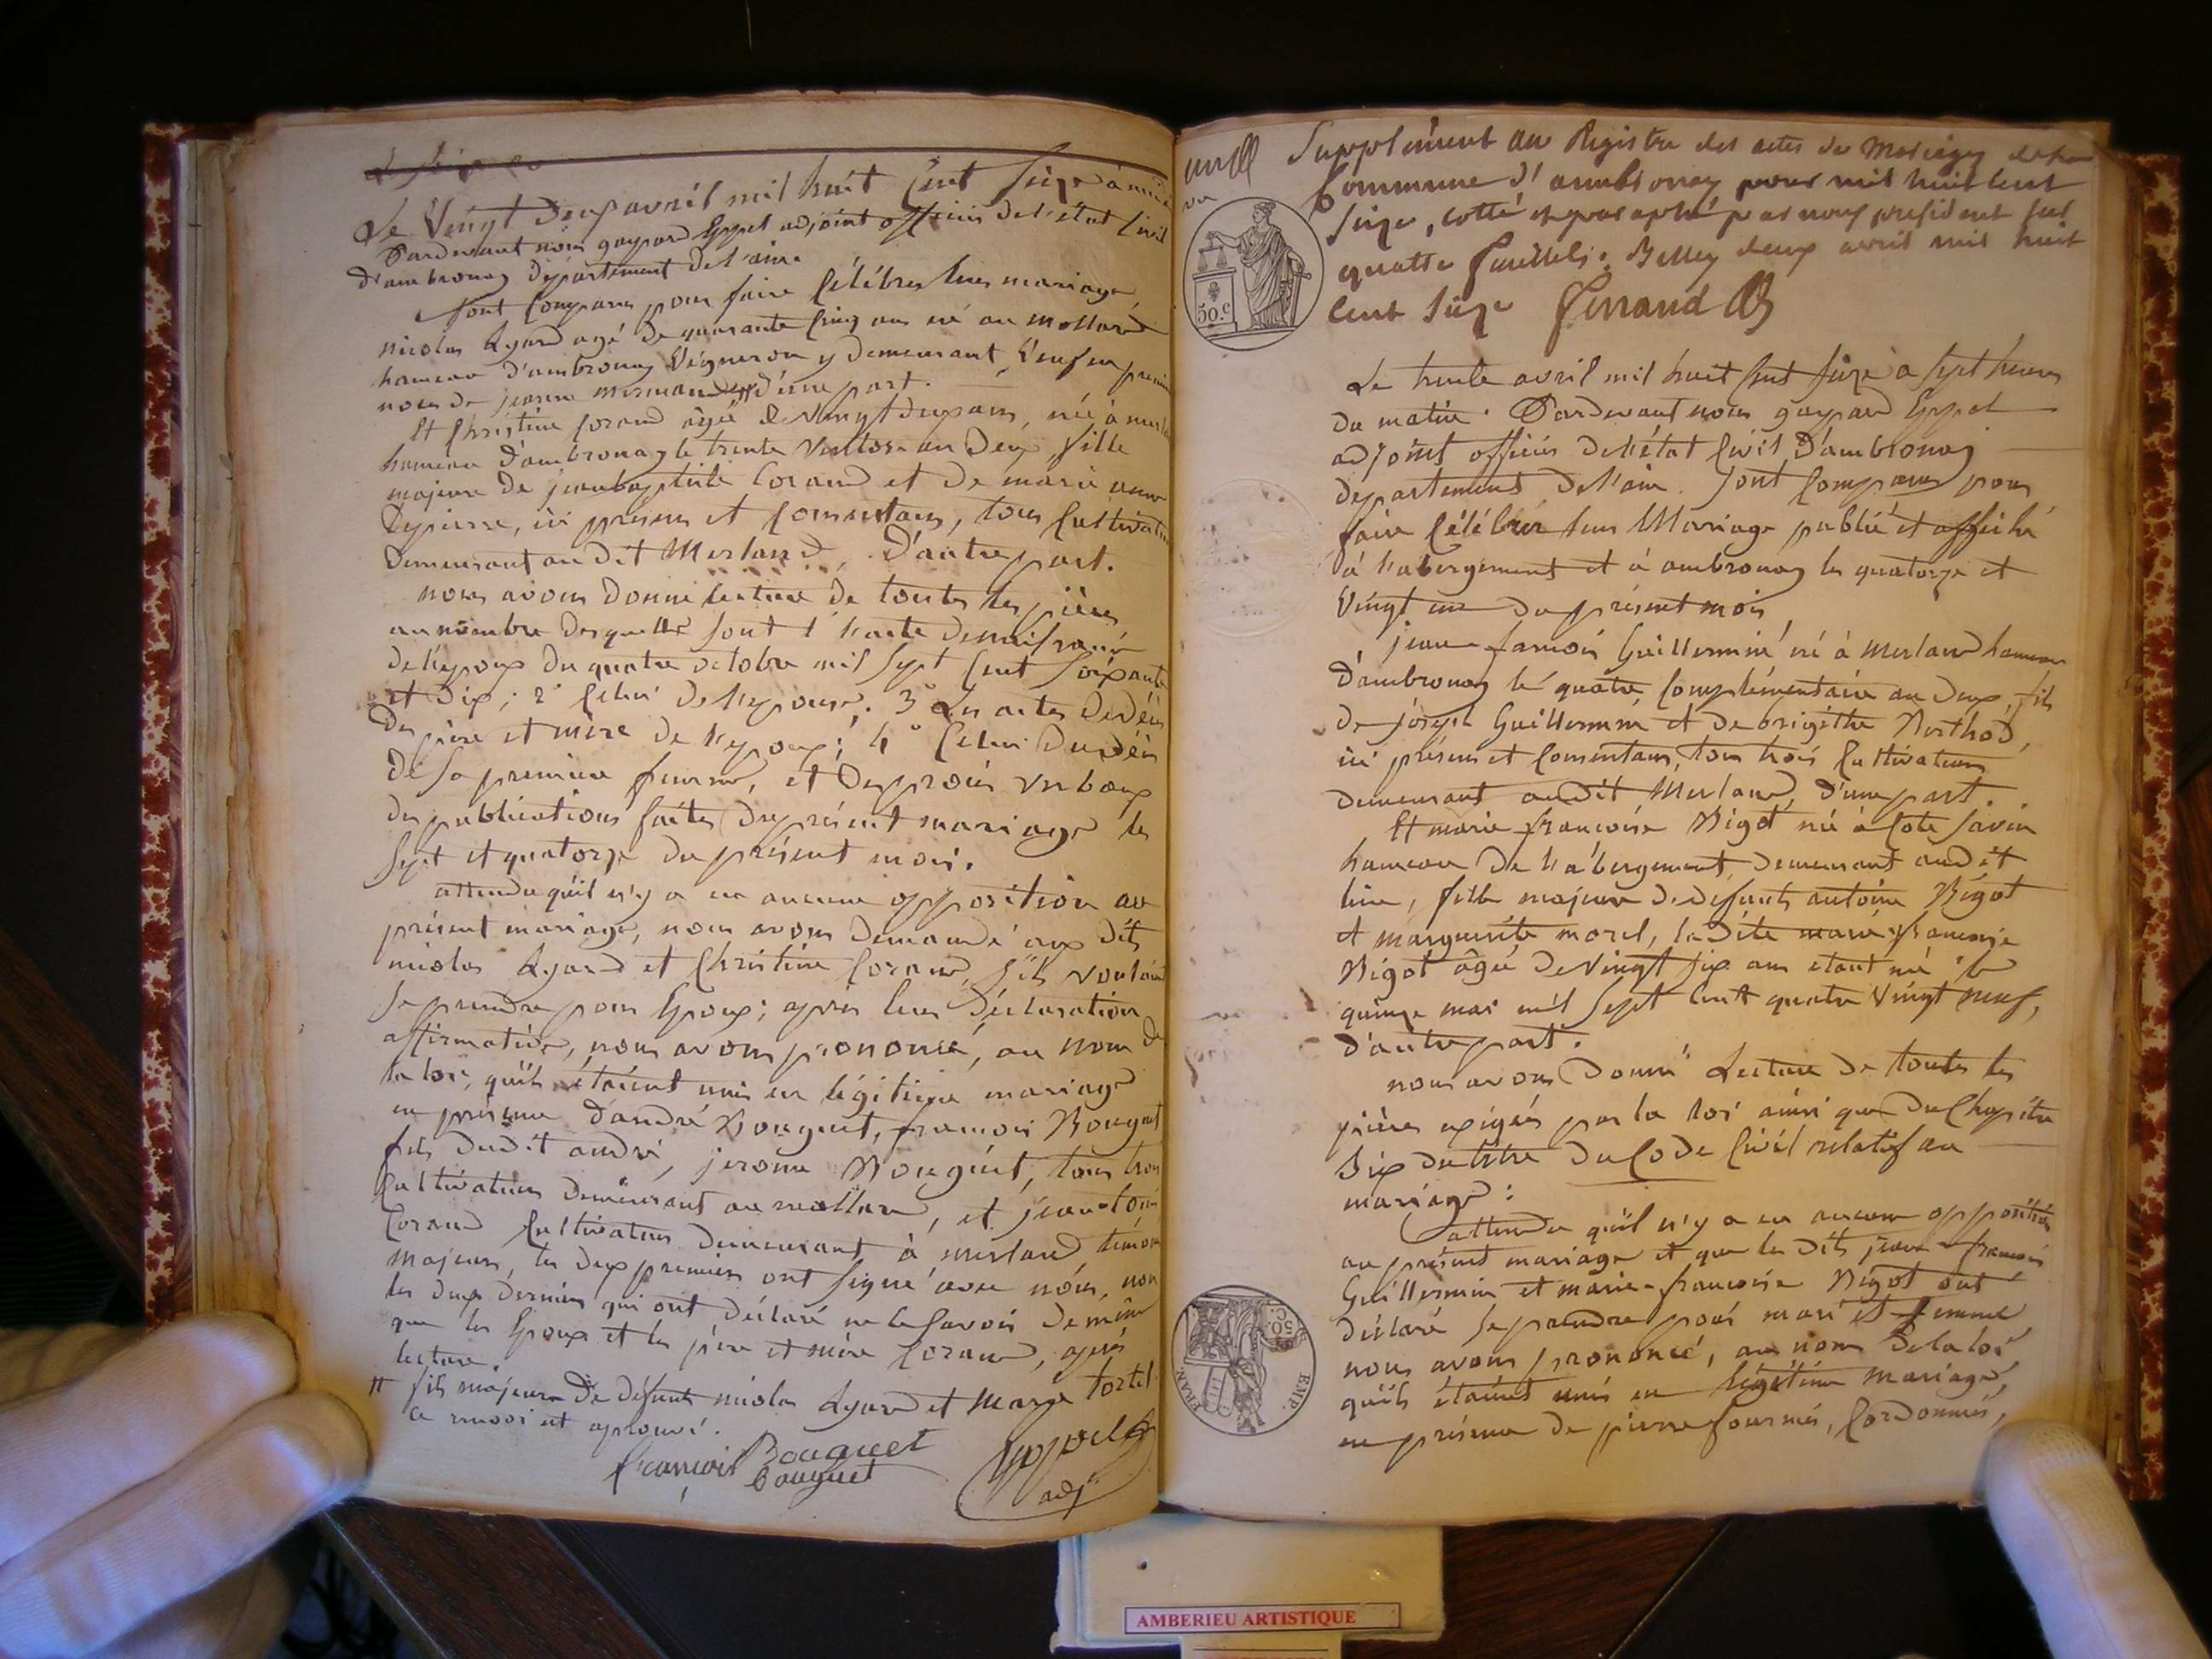 Le Vingt deux avril mil huit Cent Seize à midi
Pardevant nous gaspard Eppel adjoint officier de l'état Civil
d'ambronay département de l'ain.
Sont Comparus pour faire Célébrer leur mariage
nicolas Ayard agé de quarante Cinq ans né au mollard
hameau d'ambronay Vigneron y demeurant Veuf en premieres
noces de jeanne d'une part.
Et Christine Corand âgée de Vingt deux ans, née à
hameau d'ambronay le trente Ventose an deux, fille
majeure de jean baptiste Corand et de marie anne
Depierre, ici présens et Consentans, tous Cultivateurs
demeurant au dit Merland, D'autre part.
nous avons donné lecture de toutes les pièces
au nombre desquelles sont 1° l'acte de naissance
de l'epoux du quatre octobre mil Sept Cent Soixante
et dix; 2° Celui de l'epouse; 3° Les actes de décès
des père et mère de l'epoux; 4° Celui du décès
de sa premiere femme, et des procès verbaux
des publications faites du présent mariage les
Sept et quatorze du présent mois.
attendu qu'il n'y a eu aucune opposition au
présent mariage, nous avons demandé aux dits
nicolas Ayard et Christine Corand, s'ils vouloient
Se prendre pour Epoux; après leur déclaration
affirmative, nous avons prononcé, au nom de
la loi, qu'ils étaient unis en légitime mariage
en présence d'andré Bouguet, françois Bouguet
fils dudit andré, jerome Bouguet, tous trois
Cultivateurs demeurant au mollard, et jean
Corand Cultivateur demeurant à merland témoins
majeurs, les deux premiers ont signé avec nous, non
les deux derniers qui ont déclaré ne le savoir de même
que les Epoux et les père et mère Corand, après
lecture.
# fils majeur de défunts nicolas Ayard et Marie
Ce renvoi est aprouvé.
françois Bouguet
bouguet
Eppel
adj
Supplément au Registre des actes de Mariages de la
Commune d'ambronay pour mil huit cent
Seize, cotté et paraphé par nous president sur
quatre feuillets. Belley deux avril mil huit
cent Seize Ferrand
50.C
Le trente avril mil huit Cent Seize à sept heures
du matin. Pardevant nous gaspard Eppel
adjoint officier de l'état Civil D'ambronay
departement de l'ain. Sont Comparus pour
faire Célébrer leur Mariage publié et affiché
à l'abergement et à ambronay les quatorze et
Vingt un du présent mois
jean-françois Guillermin né à merland hameau
D'ambronay le quatre Complémentaire an deux, fils
de joseph Guillermin et de brigitte Berthod,
ici présens et Consentans, tous trois Cultivateurs
demeurant audit Merland, d'une part.
Et marie françoise Bigot née à Cote Savin
hameau de l'abergement, demeurant audit
lieu, fille majeure de defunts antoine Bigot
et marguerite morel, la dite marie françoise
Bigot âgée de Vingt six ans etant née le
quinze mai mil Sept Cent quatre Vingt neuf,
d'autre part.
nous avons donné Lecture de toutes les
pièces exigées par la loi ainsi que du Chapitre
Six du titre du Code Civil relatif au
mariage:
attendu qu'il n'y a eu aucune opposition
au présent mariage et que les dits jean-françois
Guillermin et marie-françoise Bigot ont
déclaré se prendre pour mari et femme
nous avons prononcé, au nom de la loi
qu'ils étaient unis en légitime mariage,
en présence de pierre fournier, Cordonnier,
FRAN.
EMP.
50.C
AMBERIEU ARTISTIQUE